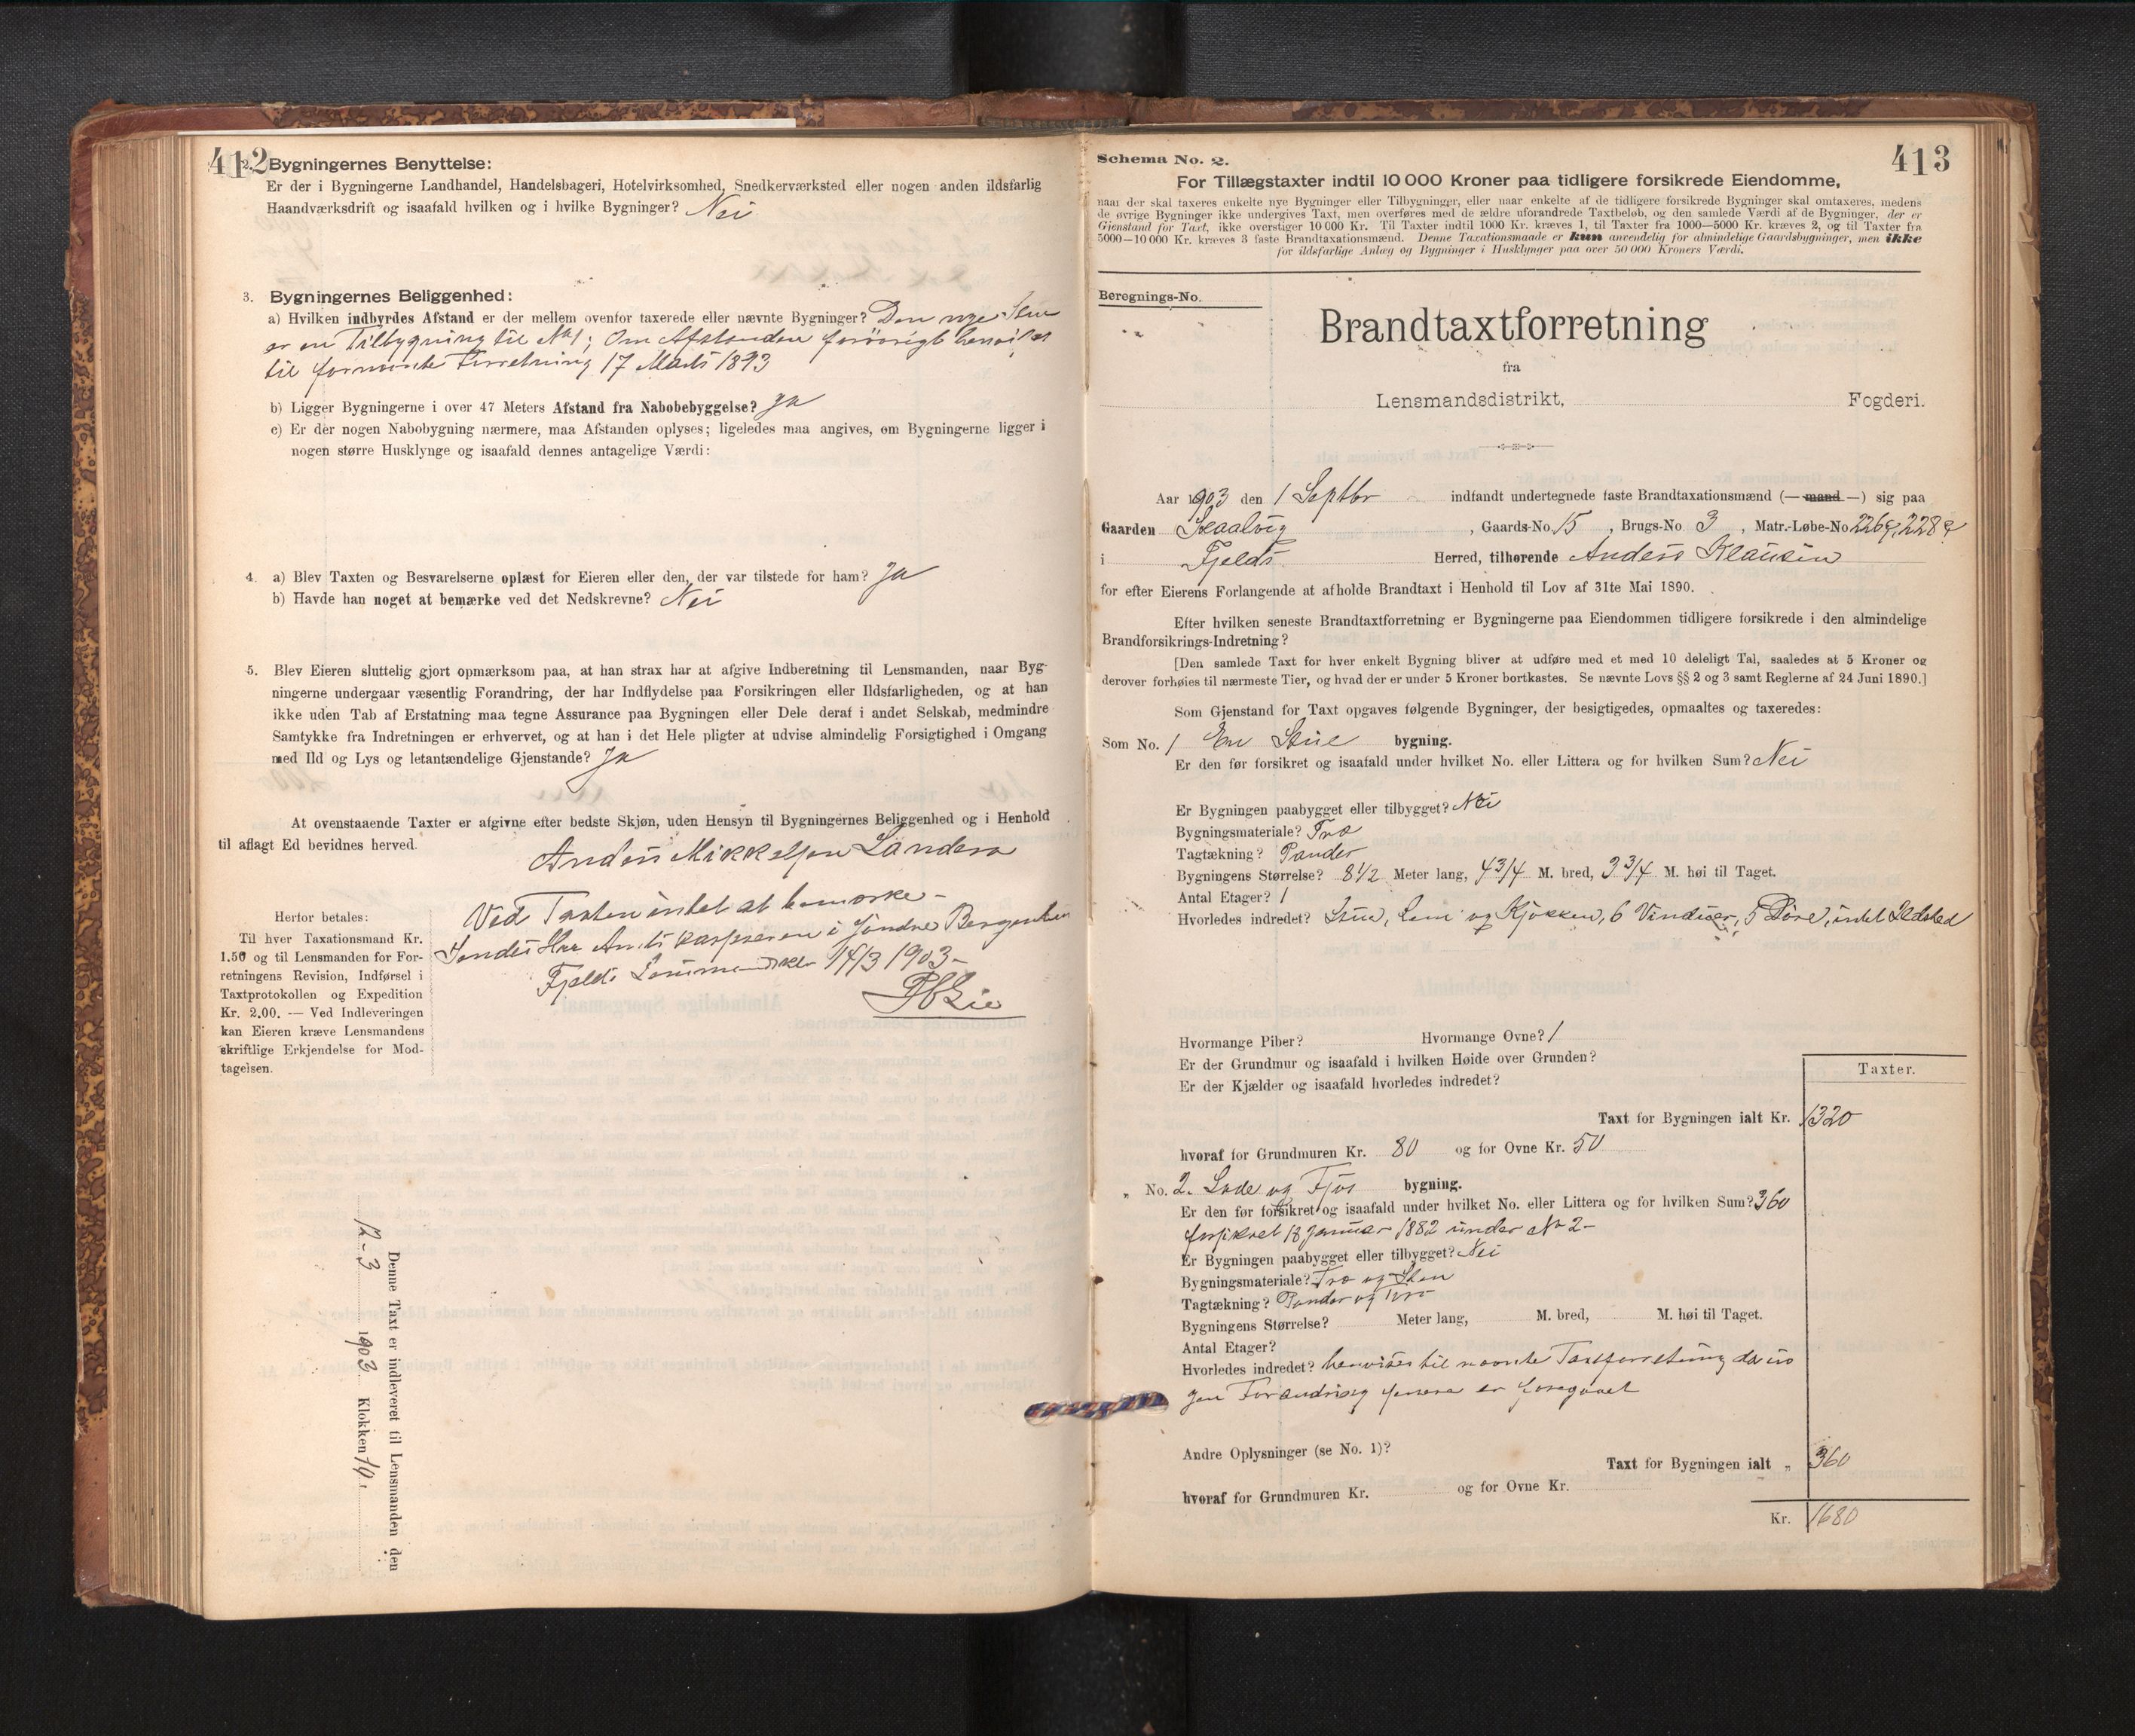 412
2. Bygningernes Benyttelse:
Er der i Bygningerne Landhandel, Handelsbageri, Hotelvirksomhed, Snedkerværksted eller nogen anden ildsfarlig
Haandværksdrift og isaafald hvilken og i hvilke Bygninger? Nei
3. Bygningernes Beliggenhed:
a) Hvilken indbyrdes Afstand er der mellem ovenfor taxerede eller nævnte Bygninger? Den nye Stue
er en Tilbygning til No 1; Om Afstanden forövrigt henvises
til formente Forretning 17 Marts 1893
b) Ligger Bygningerne i over 47 Meters Afstand fra Nabobebyggelse? Ja
c) Er der nogen Nabobygning nærmere, maa Afstanden oplyses; ligeledes maa angives, om Bygningerne ligger i
nogen større Husklynge og isaafald dennes antagelige Værdi:
4. a) Blev Taxten og Besvarelserne oplæst for Eieren eller den, der var tilstede for ham? Ja
b) Havde han noget at bemærke ved det Nedskrevne? Nei
5. Blev Eieren sluttelig gjort opmærksom paa, at han strax har at afgive Indberetning til Lensmanden, naar Byg-
ningerne undergaar væsentlig Forandring, der har Indflydelse paa Forsikringen eller Ildsfarligheden, og at han
ikke uden Tab af Erstatning maa tegne Assurance paa Bygningen eller Dele deraf i andet Selskab, medmindre
Samtykke fra Indretningen er erhvervet, og at han i det Hele pligter at udvise almindelig Forsigtighed i Omgang
med Ild og Lys og letantændelige Gjenstande? Ja
At ovenstaaende Taxter er afgivne efter bedste Skjøn, uden Hensyn til Bygningernes Beliggenhed og i Henhold
til aflagt Ed bevidnes herved.
Anders Mikkelsen Landero
Ved Taxten intet at bemærke –
Sendes Hr Amtskasseren i Söndre Bergenhus
Fjelds Lensmandskr 14/3 1903 –
Lie
Herfor betales:
Til hver Taxationsmand Kr.
1.50 og til Lensmanden for For-
retningens Revision, Indførsel i
Taxtprotokollen og Expedition
Kr. 2.00. — Ved Indleveringen
kan Eieren kræve Lensmandens
skriftlige Erkjendelse for Mod-
tagelsen.
Denne Taxt er indleveret til Lensmanden den
12-3 1903 Klokken
413
Schema No. 2.
For Tillægstaxter indtil 10 000 Kroner paa tidligere forsikrede Eiendomme,
naar der skal taxeres enkelte nye Bygninger eller Tilbygninger, eller naar enkelte af de tidligere forsikrede Bygninger skal omtaxeres, medens
de øvrige Bygninger ikke undergives Taxt, men overføres med de ældre uforandrede Taxtbeløb, og den samlede Værdi af de Bygninger, der er
Gjenstand for Taxt, ikke overstiger 10 000 Kr. Til Taxter indtil 1000 Kr. kræves 1, til Taxter fra 1000—5000 Kr. kræves 2, og til Taxter fra
5000—10 000 Kr. kræves 3 faste Brandtaxationsmænd. Denne Taxationsmaade er kun anvendelig for almindelige Gaardsbygninger, men ikke
for ildsfarlige Anlæg og Bygninger i Husklynger paa over 50 000 Kroners Værdi.
Beregnings-No.
Brandtaxtforretning
fra
Lensmandsdistrikt, Fogderi.
Aar 1903 den 1 Septbr indfandt undertegnede faste Brandtaxationsmænd (— mand —) sig paa
Gaarden Skaalvig, Gaards-No. 15, Brugs-No. 3, Matr.-Løbe-No 226c, 228a
i Fjelds Herred, tilhørende Anders Klausen
for efter Eierens Forlangende at afholde Brandtaxt i Henhold til Lov af 31te Mai 1890.
Efter hvilken seneste Brandtaxtforretning er Bygningerne paa Eiendommen tidligere forsikrede i den almindelige
Brandforsikrings-Indretning?
[Den samlede Taxt for hver enkelt Bygning bliver at udføre med et med 10 deleligt Tal, saaledes at 5 Kroner og
derover forhøies til nærmeste Tier, og hvad der er under 5 Kroner bortkastes. Se nævnte Lovs §§ 2 og 3 samt Reglerne af 24 Juni 1890.]
Som Gjenstand for Taxt opgaves følgende Bygninger, der besigtigedes, opmaaltes og taxeredes:
Som No. 1 En Stue bygning.
Er den før forsikret og isaafald under hvilket No. eller Littera og for hvilken Sum? Nei
Er Bygningen paabygget eller tilbygget? Nei
Bygningsmateriale? Træ
Tagtækning? Pander
Bygningens Størrelse? 8 1/2 Meter lang, 4 3/4 M. bred, 3 3/4 M. høi til Taget.
Antal Etager? 1
Hvorledes indredet? Stue, Lem og Kjøkken, 6 Vinduer, 5 Døre, intet Ildsted
Hvormange Piber? Hvormange Ovne? 1
Er der Grundmur og isaafald i hvilken Høide over Grunden?
Er der Kjælder og isaafald hvorledes indredet?
Taxter.
Taxt for Bygningen ialt Kr. 1320
hvoraf for Grundmuren Kr. 80 og for Ovne Kr. 50
„ No. 2. Lade og Fjøs bygning.
Er den før forsikret og isaafald under hvilket No. eller Littera og for hvilken Sum? 360
forsikret 18 Januar 1882 under No 2 –
Er Bygningen paabygget eller tilbygget? Nei
Bygningsmateriale? Træ og Sten
Tagtækning? Pander og
Bygningens Størrelse? Meter lang, M. bred, M. høi til Taget.
Antal Etager?
Hvorledes indredet? henvises til nævnte Taxtforretning da in
gen Forandring senere er foregaaet
Andre Oplysninger (se No. 1)?
Taxt for Bygningen ialt „ 360
hvoraf for Grundmuren Kr. og for Ovne Kr.
Kr. 1680